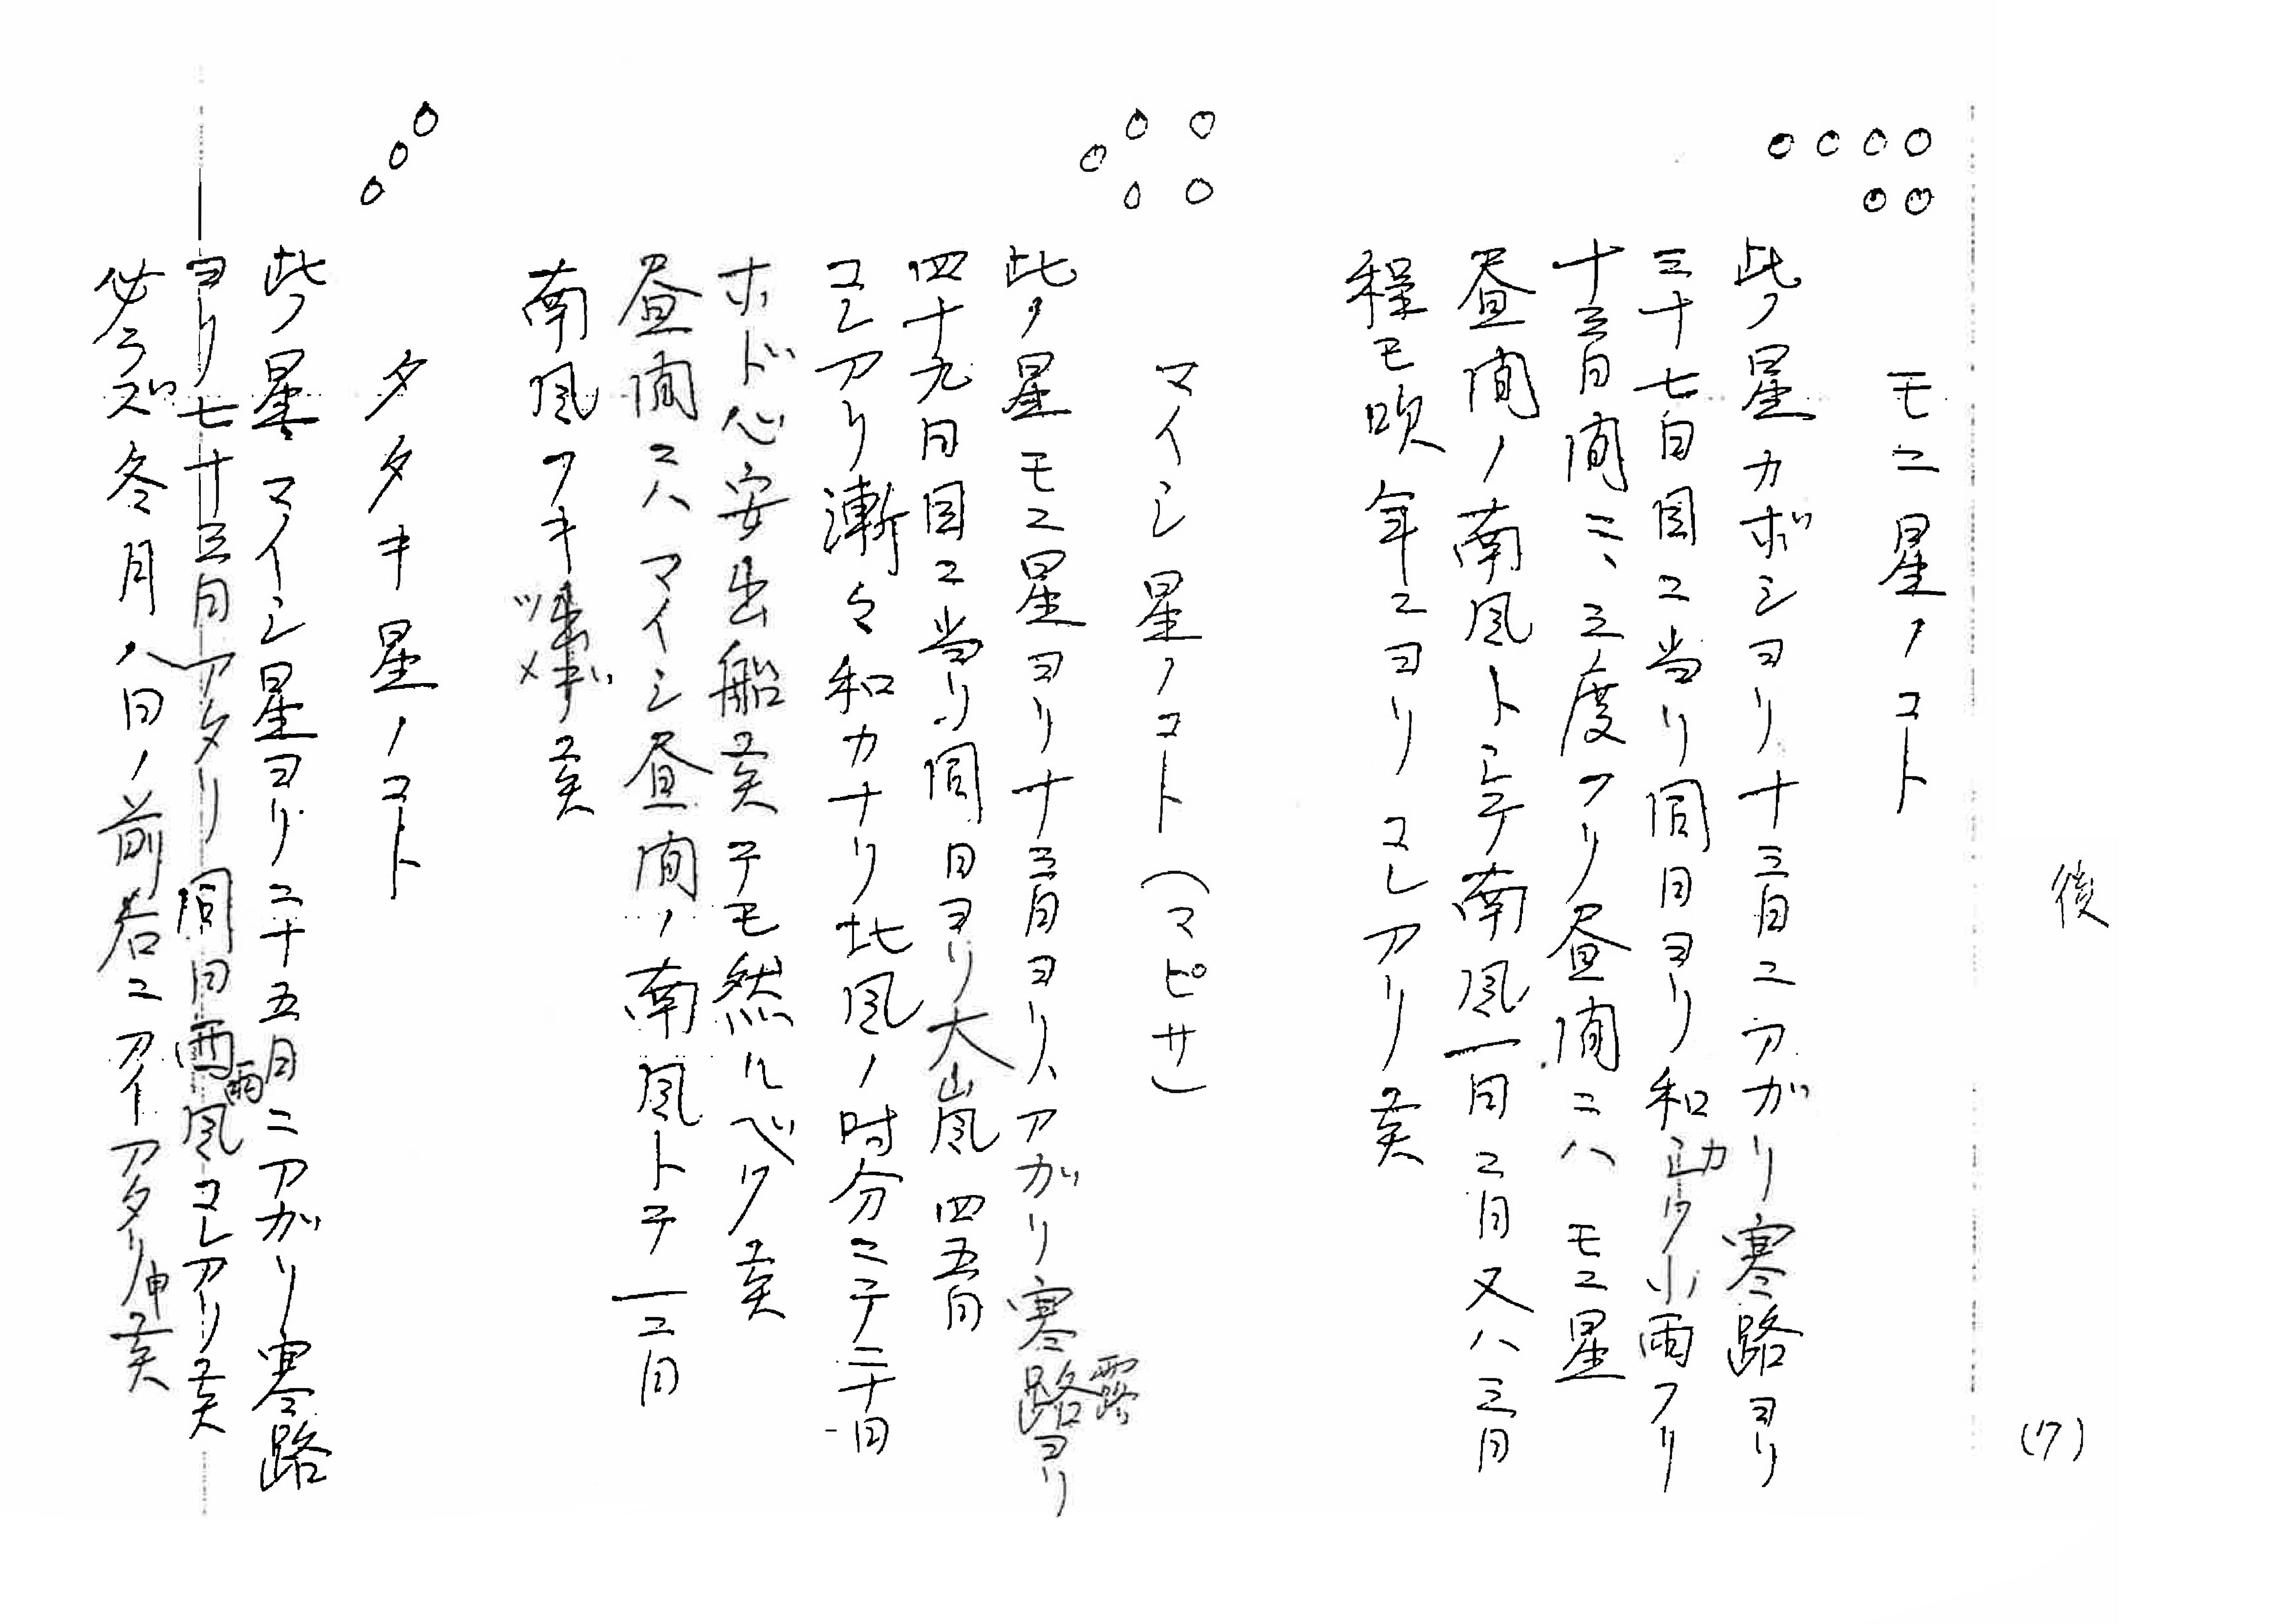 後
(ワ)
モニ星ノコト
此ノ星カボシヨリ十三日ニアガリ寒路ヨリ
三十七日目ニ当リ同日ヨリ和カク小雨フリ
十三日間ニ、三度フリ昼間ニハモニ星
昼間ノ南風トシテ南風一日二日又ハ三日
程モ吹年ニヨリコレアリ候
マイシ星ノコト(マピサ)
此ノ星モニ星ヨリ十三日ヨリ、アガリ寒路ヨリ
露
四十九日目ニ当リ同日ヨリ大嵐四五日
コレアリ漸々和カナリ北風ノ時分ニテ二十日
ホド心安出船候テモ然ルベク候
昼間ニハマイシ昼間ノ南風トテ一二日
南風フキ候
タタキ星ノコト
此ノ星マイシ星ヨリ二十五日ニアガリ寒路
ヨリ七十三日アタリ同日雨風コレアリ候
雨
必ラズ冬月八日ノ前右ニアイアタリ申候